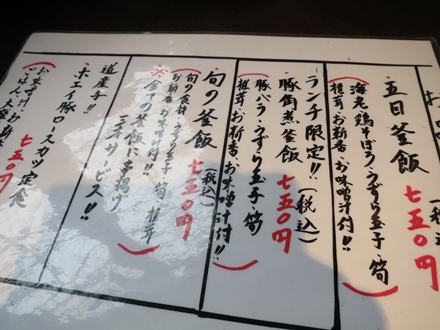 五目釜飯(税込)
七五〇円
(海老・鶏そぼろ・うずら玉子・筍
椎茸・お新香・お味噌汁付!!)
ランチ限定!!
豚角煮釜飯(税込)
七五〇円
(豚バラ・うずら玉子・筍
椎茸・お新香・お味噌汁付!!)
旬の釜飯(税込)
七五〇円
(旬の食材・うずら玉子・筍・椎茸
お新香・お味噌汁付!!)
※全ての釜飯に串揚げ
三本サービス!!
道産子!!
ホエイ豚ロースカツ定食
七五〇円